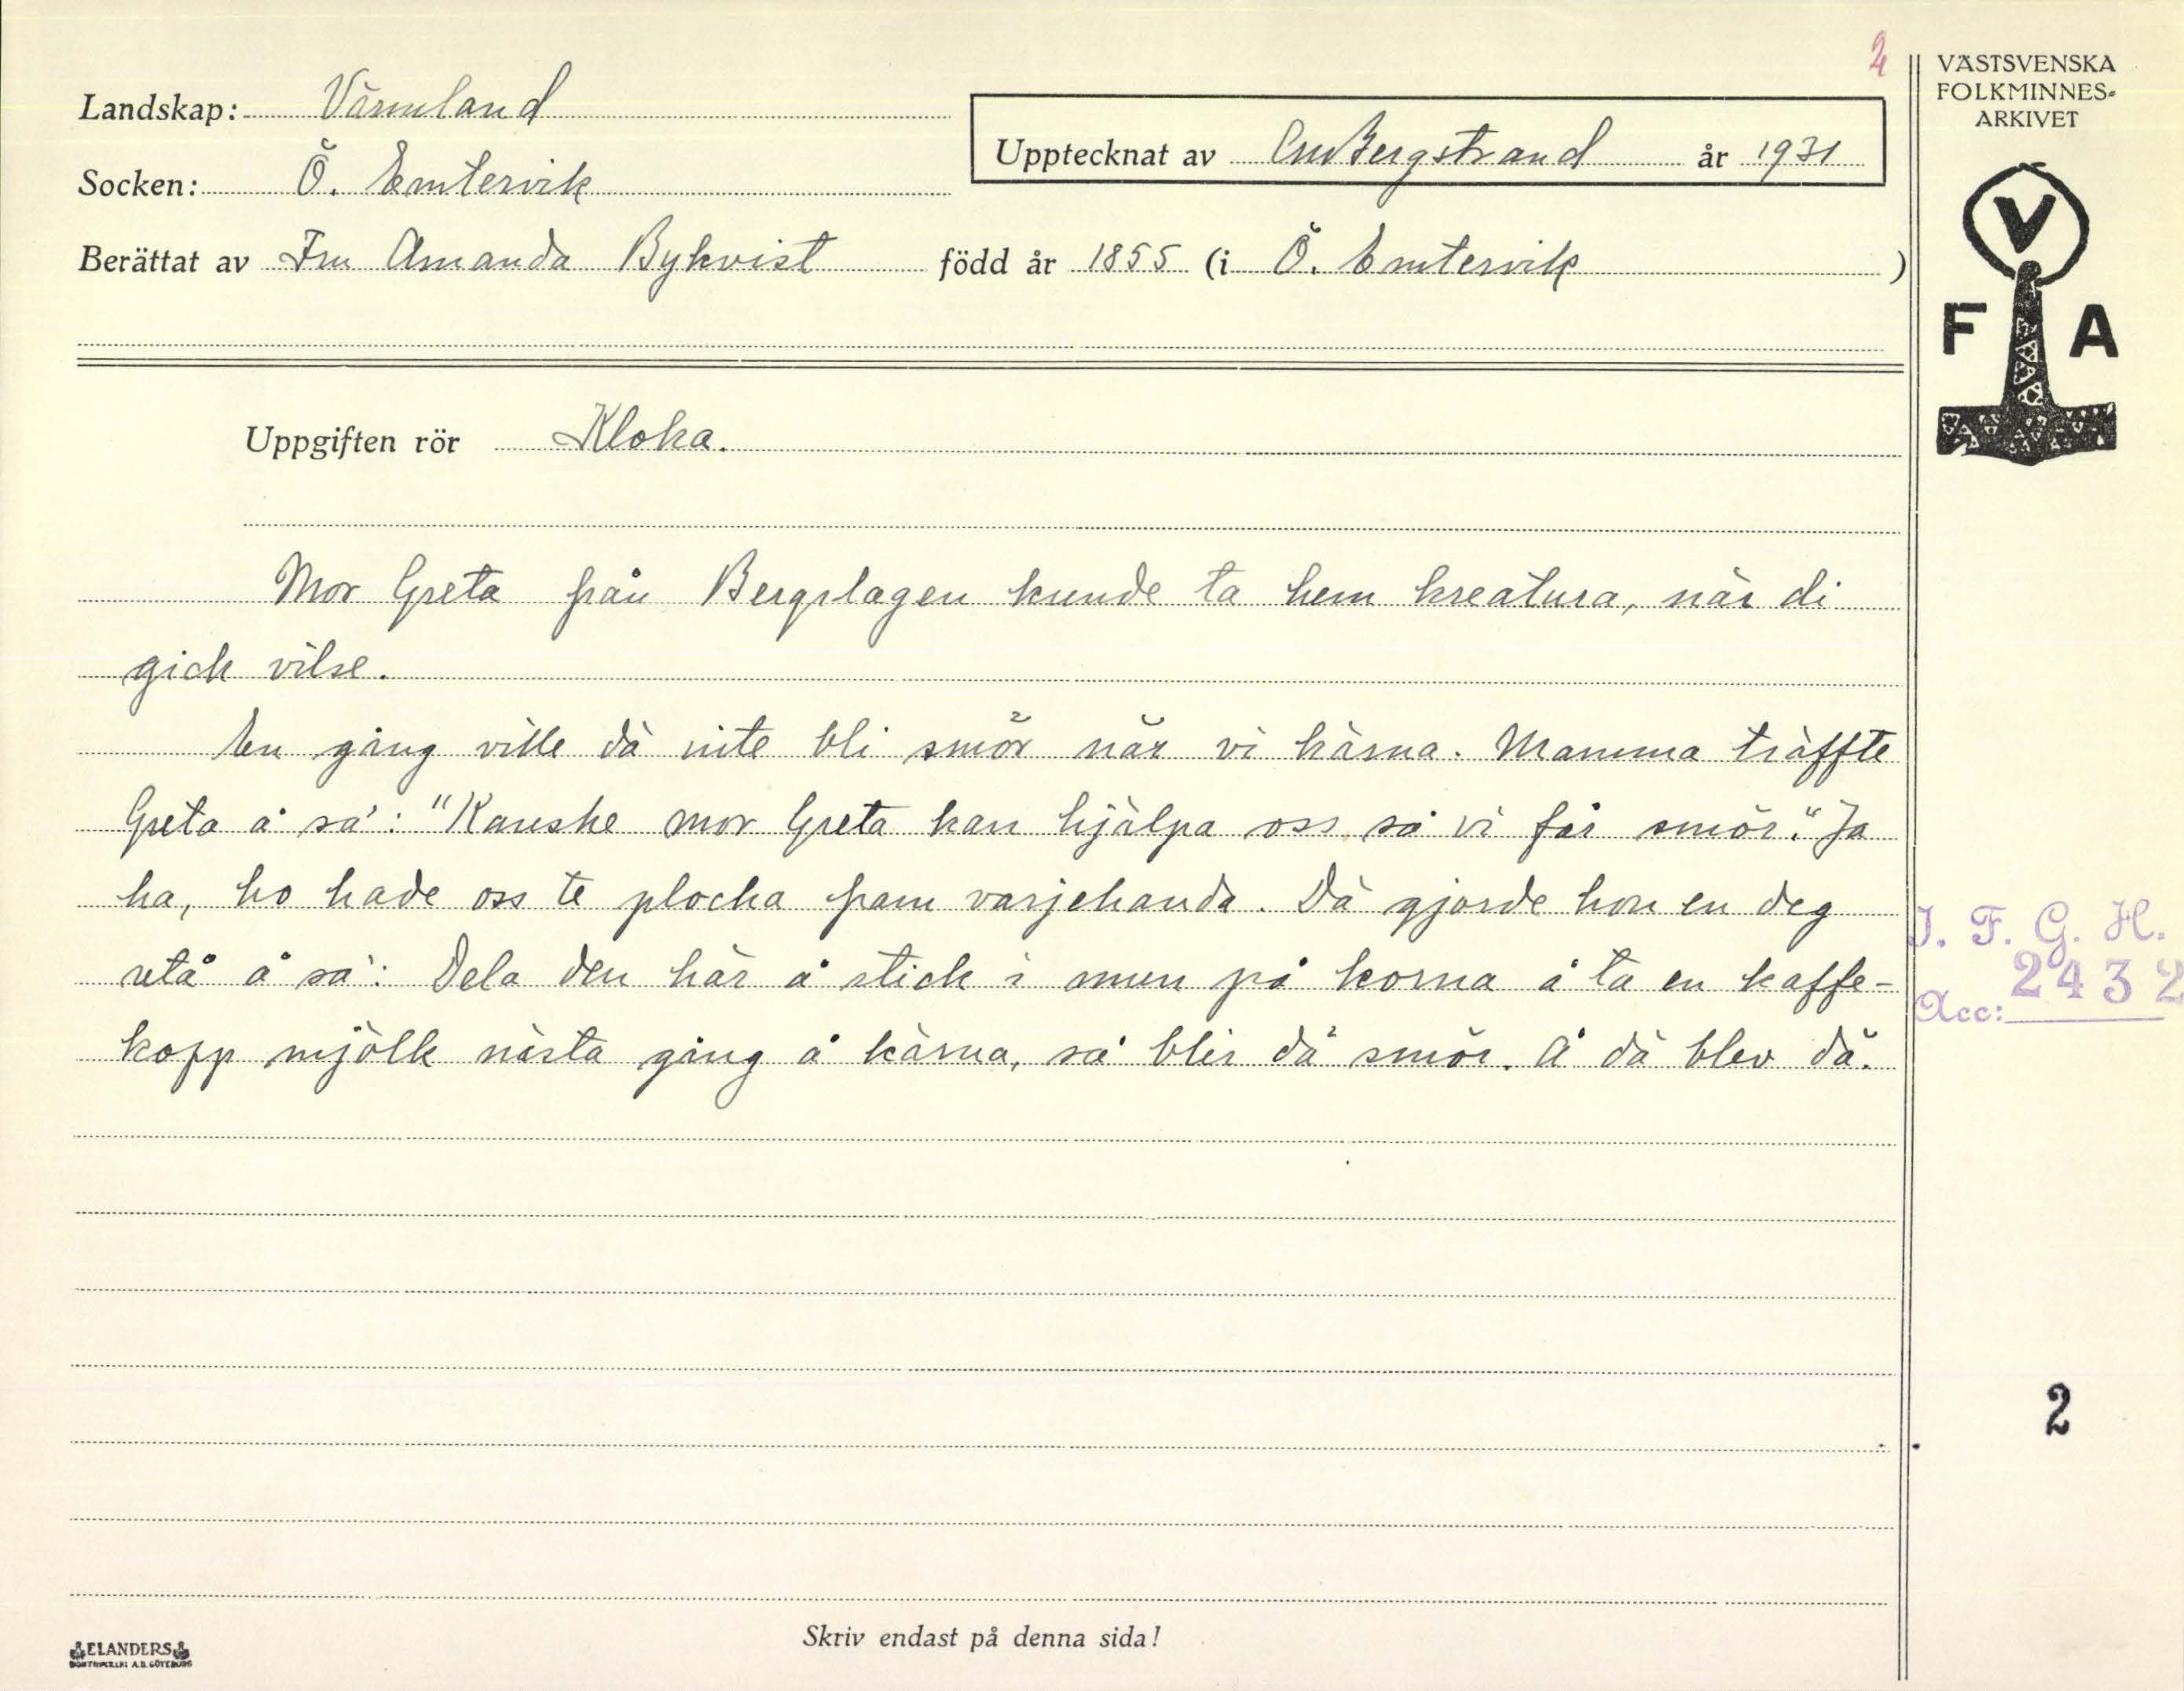 2
VÄSTSVENSKA
FOLKMINNES-
ARKIVET
Landskap: Värmland
Upptecknat av CM Bergstrand år 1931
Socken: Ö. Emtervik
Berättat av Fru Amanda Bykvist född år 1855 (i Ö. Emtervik)
V
F A
Uppgiften rör Kloka.
Mor Greta från Bergslagen kunde ta hem kreatura, när di
gick vilse.
En gång ville dä inte bli smör när vi kärna. Mamma träffte
Greta å sa': "Kanske mor Greta kan hjälpa oss, så vi får smör." Ja
ha, ho hade oss te plocka fram varjehanda. Då gjorde hon en deg
utå å sa': Dela den här å stick i mun på korna å ta en kaffe-
kopp mjölk nästa gång å kärna, så blir dä smör. Å dä blev dä.
I. F. G. H.
Acc: 2432
2
Skriv endast på denna sida!
ELANDERS
BOKTRYCKERI A.B. GÖTEBORG